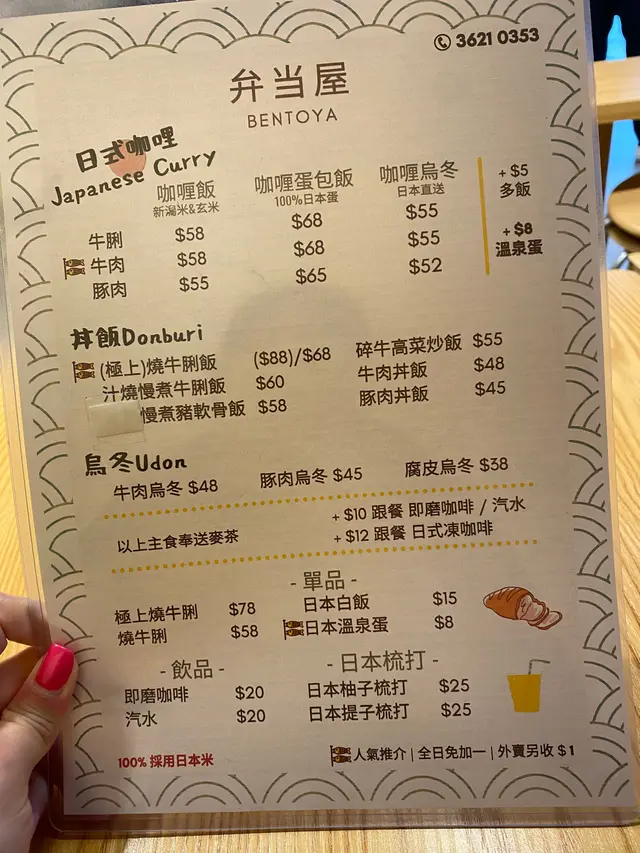 3621 0353
弁当屋
BENTOYA
日式咖喱
Japanese Curry
咖喱飯 咖喱蛋包飯 咖喱烏冬
新潟米&玄米 100%日本蛋 日本直送
牛脷 $58 $68 $55
牛肉 $58 $68 $55
豚肉 $55 $65 $52
+ $5
多飯
+ $8
溫泉蛋
丼飯Donburi
(極上)燒牛脷飯 ($88)/$68
汁燒慢煮牛脷飯 $60
慢煮豬軟骨飯 $58
碎牛高菜炒飯 $55
牛肉丼飯 $48
豚肉丼飯 $45
烏冬Udon
牛肉烏冬 $48 豚肉烏冬 $45 腐皮烏冬 $38
以上主食奉送麥茶
+ $10 跟餐 即磨咖啡 / 汽水
+ $12 跟餐 日式凍咖啡
- 單品 -
極上燒牛脷 $78 日本白飯 $15
燒牛脷 $58 日本溫泉蛋 $8
- 飲品 -
即磨咖啡 $20
汽水 $20
- 日本梳打 -
日本柚子梳打 $25
日本提子梳打 $25
100% 採用日本米
人氣推介 | 全日免加一 | 外賣另收 $1